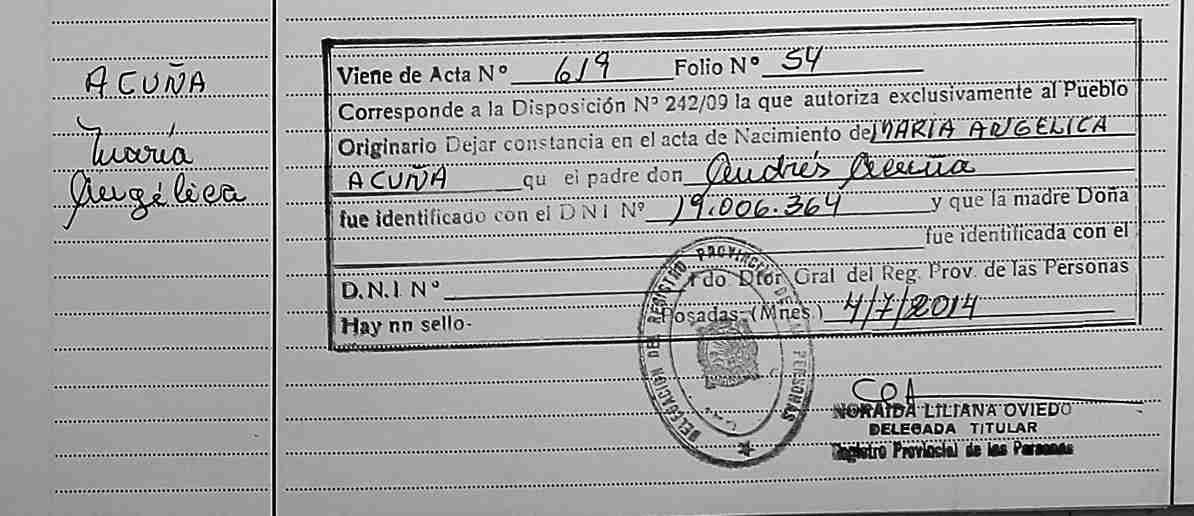 ACUÑA
María
Angélica
Viene de Acta Nº 619 Folio Nº 54
Corresponde a la Disposición Nº 242/09 la que autoriza exclusivamente al Pueblo
Originario Dejar constancia en el acta de Nacimiento de MARIA ANGELICA
ACUÑA qu el padre don Andrés Acuña
fue identificado con el D N I Nº 19.006.364 y que la madre Doña
fue identificada con el
D.N.I Nº
do Dtor Gral del Reg. Prov. de las Personas
Hay nn sello- Posadas (Mnes.) 4/7/2014
DELEGACION DEL REGISTRO PROVINCIAL DE LAS PERSONAS
NORAIDA LILIANA OVIEDO
DELEGADA TITULAR
Registro Provincial de las Personas